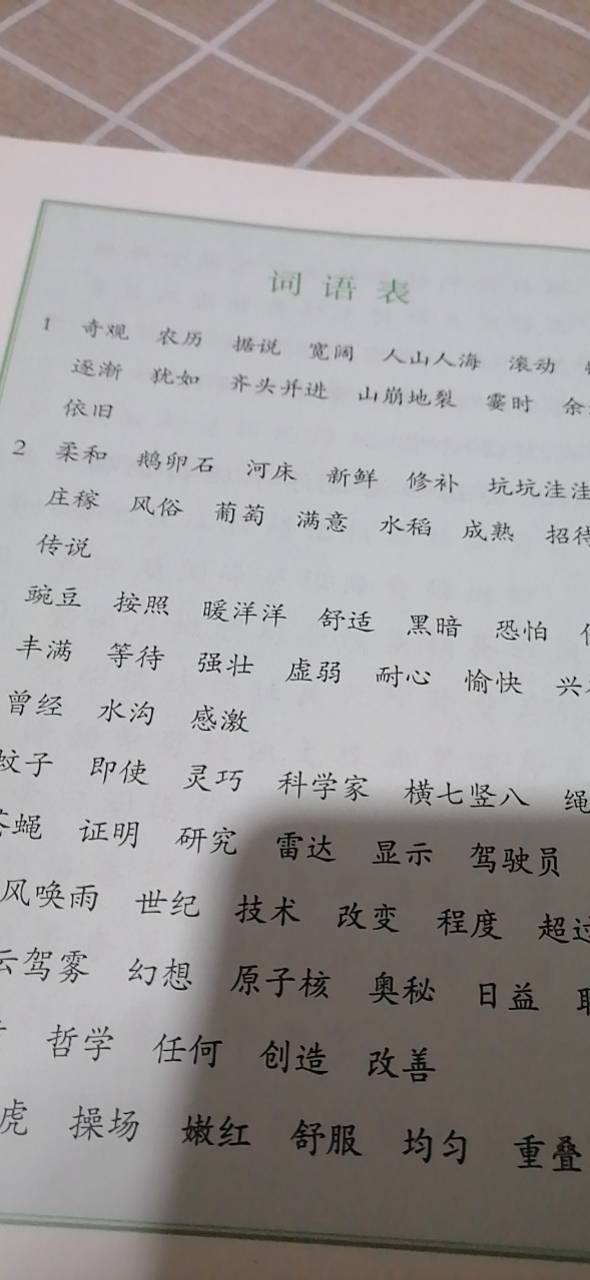 词语表
1 奇观 农历 据说 宽阔 人山人海 滚动
逐渐 犹如 齐头并进 山崩地裂 霎时 余
依旧
2 柔和 鹅卵石 河床 新鲜 修补 坑坑洼洼
庄稼 风俗 葡萄 满意 水稻 成熟 招待
传说
豌豆 按照 暖洋洋 舒适 黑暗 恐怕
丰满 等待 强壮 虚弱 耐心 愉快 兴
曾经 水沟 感激
蚊子 即使 灵巧 科学家 横七竖八 绳
苍蝇 证明 研究 雷达 显示 驾驶员
风唤雨 世纪 技术 改变 程度 超过
云驾雾 幻想 原子核 奥秘 日益
哲学 任何 创造 改善
虎 操场 嫩红 舒服 均匀 重叠